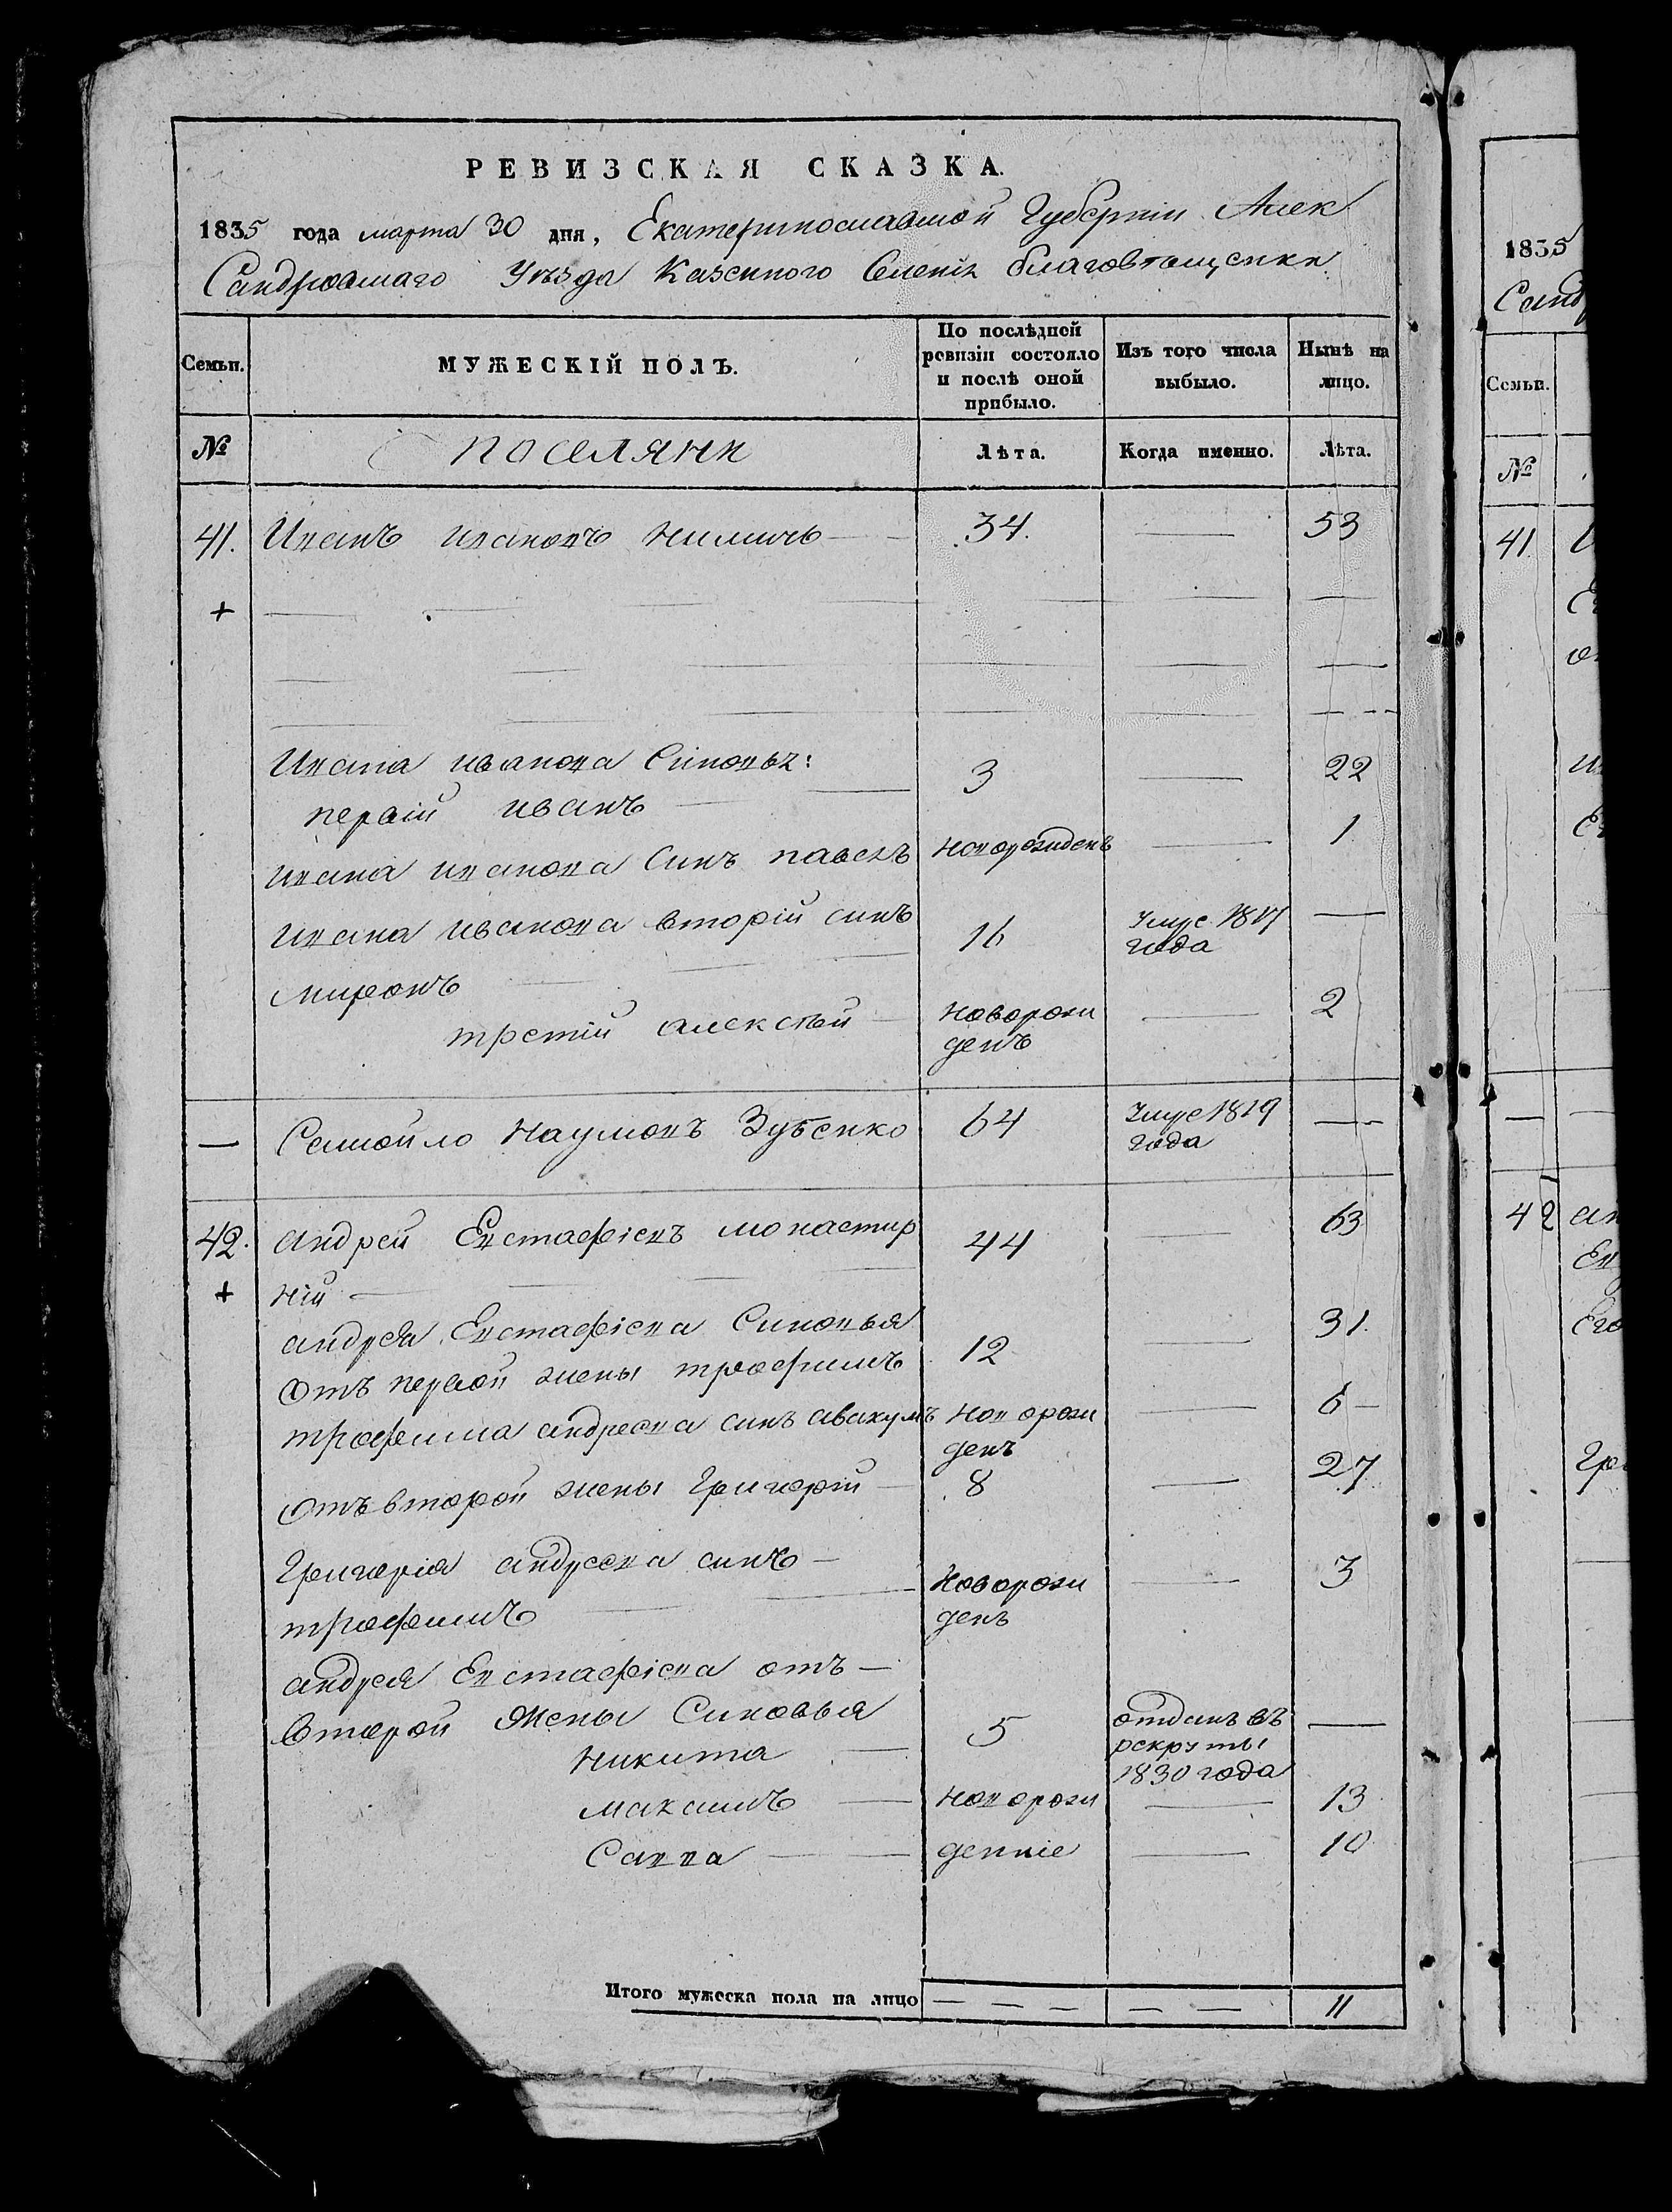 РЕВИЗСКАЯ СКАЗКА.
1835 года марта 30 дня, Екатеринославской Губернии Алек
Сандровшаго Уѣзда Казенного Селенія благовѣщенки
Семьи. МУЖЕСКІЙ ПОЛЪ. По послѣдней ревизіи состояло и послѣ оной прибыло. Изъ того числа выбыло. Нынѣ на лицо.
№ поселяни Лѣта. Когда именно. Лѣта.
41. Иванъ ивановъ 34. 53
+
Ивана иванова Синовьѧ: 3 22
первій иванъ
ивана иванова Синъ павелъ новорожденъ 1
ивана иванова вторій синъ 16 умре 1817 года
миронъ
третій алексѣй новорож 2
денъ
Самойло наумовъ Зубенко 64 умре 1819 года
42. андрей Евстафіевъ монастир 44 63
+ ній
андрея Евстафіева Синовья
отъ первой жены трофимъ 12 31.
трофима андреева синъ авакумъ новорож 6
денъ
отъ второй жены Григорій 8 27
Григорія андреева синъ новорож 3
трофимъ денъ
андрея Евстафіева отъ
второй жены Синовья
никита 5 отданъ въ рекруты 1830 года
максимъ новорож 13
Савва денніе 10
Итого мужеска пола на лицо 11
1835
Санд
Семьи.
№
41
42 ан
Ев
Его
Гри